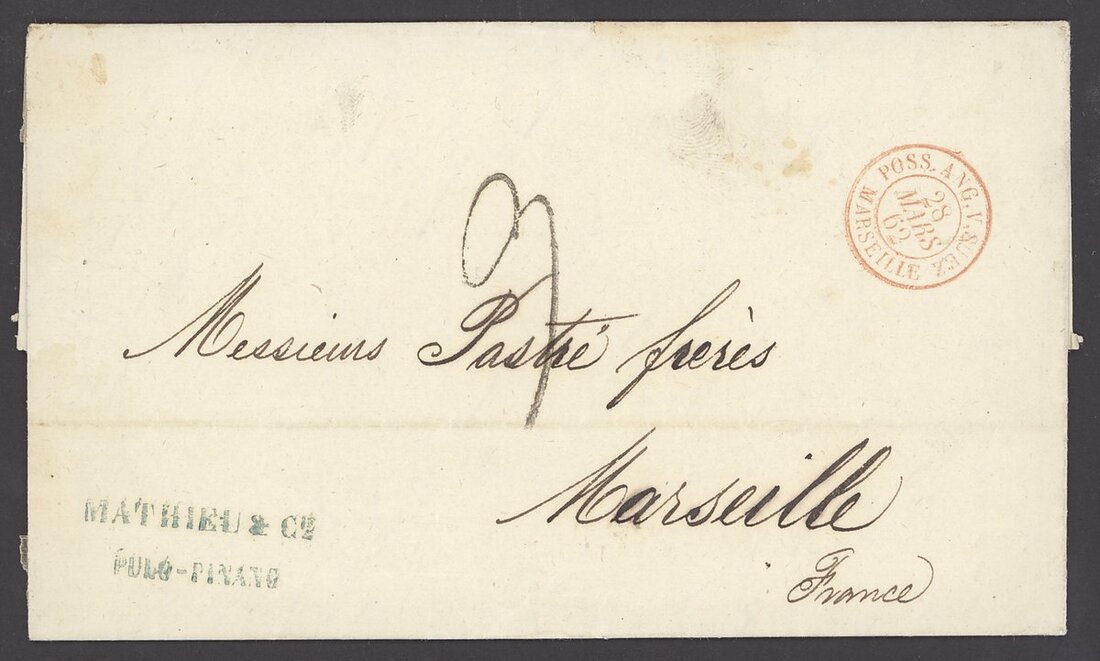 POSS. ANG. V. SUEZ
28
MARS
62
MARSEILLE
Messieurs Pastré frères
Marseille
France
MATHIEU & Cie
PULO-PINANG